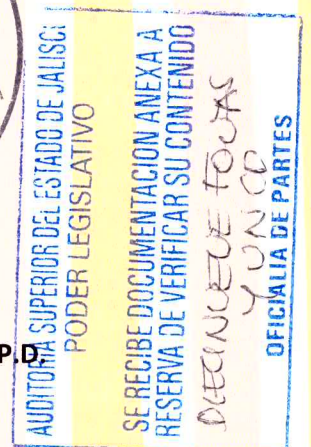 AUDITORIA SUPERIOR DEL ESTADO DE JALISCO
PODER LEGISLATIVO
SE RECIBE DOCUMENTACION ANEXA A
RESERVA DE VERIFICAR SU CONTENIDO
DIECINUEVE FOJAS
Y UN CD
OFICIALIA DE PARTES
P.D.